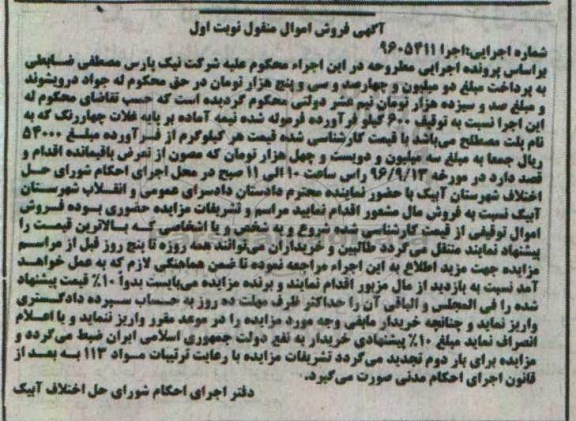 آگهی فروش اموال منقول نوبت اول
شماره اجرایی:اجرا ۹۶۰۵۴۱۱
براساس پرونده اجرایی مطروحه در این اجراء محکوم علیه شرکت نیک پارس مصطفی ضابطی
به پرداخت مبلغ دو میلیون و چهارصد و سی و پنج هزار تومان در حق محکوم له جواد درویشوند
و مبلغ صد و سیزده هزار تومان نیم عشر دولتی محکوم گردیده است که حسب تقاضای محکوم له
این اجرا نسبت به توقیف ۶۰۰ کیلو فرآورده فرموله شده نیمه آماده بر پایه غلات چهاررنگ که به
نام پلت مصطلح می‌باشد با قیمت کارشناسی شده قیمت هر کیلوگرم از فرآورده مبلغ ۵۴۰۰۰
ریال جمعا به مبلغ سه میلیون و دویست و چهل هزار تومان که مصون از تعرض باقیمانده اقدام و
قصد دارد در مورخه ۹۶/۹/۱۳ راس ساعت ۱۰ الی ۱۱ صبح در محل اجرای احکام شورای حل
اختلاف شهرستان آبیک با حضور نماینده محترم دادستان دادسرای عمومی و انقلاب شهرستان
آبیک نسبت به فروش مال مشعور اقدام نمایید مراسم و تشریفات مزایده حضوری بوده فروش
اموال توقیفی از قیمت کارشناسی شده شروع و به شخص و یا اشخاصی که بالاترین قیمت را
پیشنهاد نمایند منتقل می‌گردد طالبین و خریداران می‌توانند همه روزه تا پنج روز قبل از مراسم
مزایده جهت مزید اطلاع به این اجراء مراجعه نموده تا ضمن هماهنگی لازم که به عمل خواهد
آمد نسبت به بازدید از مال مزبور اقدام نمایند و برنده مزایده می‌بایست بدواً ۱۰٪ قیمت پیشنهاد
شده را فی المجلس و الباقی آن را حداکثر ظرف مهلت ده روز به حساب سپرده دادگستری
واریز نماید و چنانچه خریدار مابقی وجه مورد مزایده را در موعد مقرر واریز ننماید و یا اعلام
انصراف نماید مبلغ ۱۰٪ پیشنهادی خریدار به نفع دولت جمهوری اسلامی ایران ضبط می‌گردد و
مزایده برای بار دوم تجدید می‌گردد تشریفات مزایده با رعایت ترتیبات مواد ۱۱۳ به بعد از
قانون اجرای احکام مدنی صورت می‌گیرد.
دفتر اجرای احکام شورای حل اختلاف آبیک